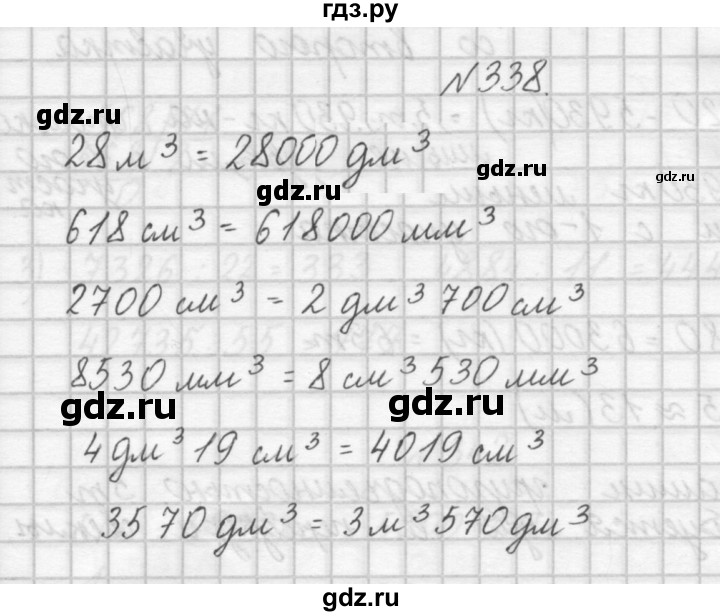 гдз.ру
№338.
gdz.ru
28 м³ = 28000 дм³
gdz.ru
gdz.ru
gdz.ru
618 см³ = 618000 мм³
2700 см³ = 2 дм³ 700 см³
8530 мм³ = 8 см³ 530 мм³
gdz.ru
gdz.ru
4 дм³ 19 см³ = 4019 см³
3570 дм³ = 3 м³ 570 дм³
gdz.ru